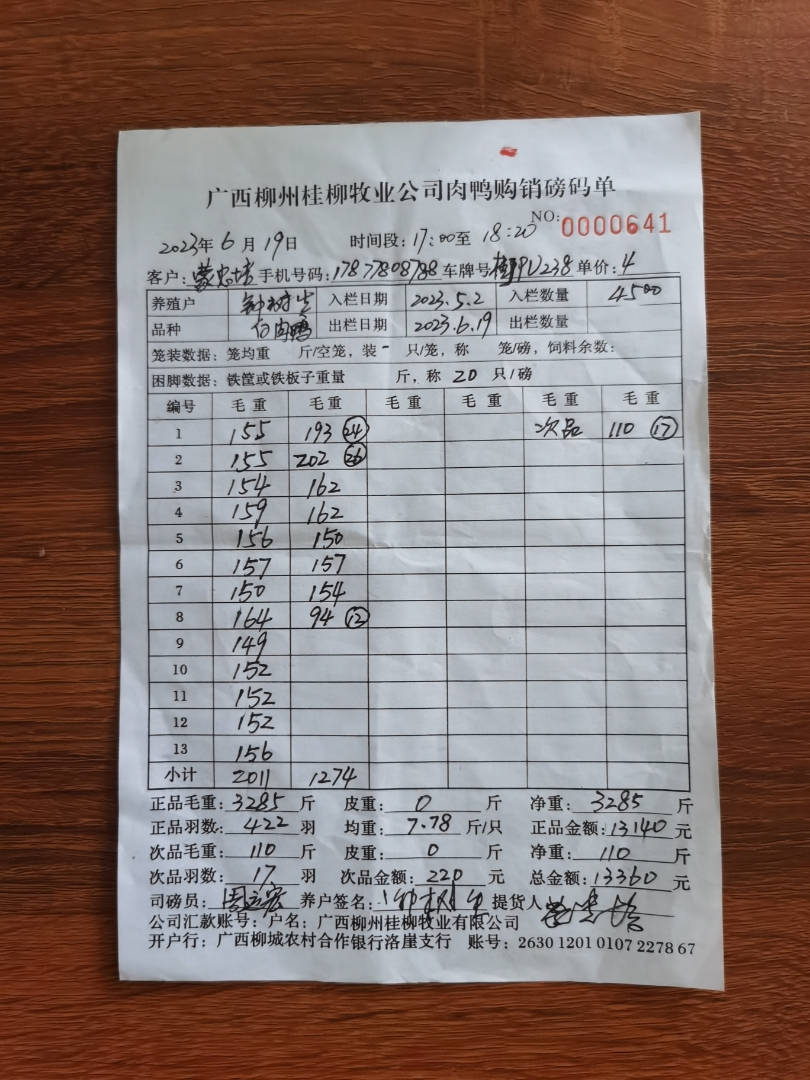 广西柳州桂柳牧业公司肉鸭购销磅码单
NO: 0000641
2023年6月19日 时间段: 17:00至 18:20
客户: 蒙忠培 手机号码: 17877808788 车牌号 U238 单价: 4
养殖户 钟树生 入栏日期 2023.5.2 入栏数量 4500
品种 白肉鸭 出栏日期 2023.6.19 出栏数量
笼装数据: 笼均重 斤/空笼, 装- 只/笼, 称 笼/磅, 饲料余数:
困脚数据: 铁筐或铁板子重量 斤, 称 20 只/磅
编号 毛重 毛重 毛重 毛重 毛重 毛重
1 155 193 24 次品 110 17
2 155 202 26
3 154 162
4 159 162
5 156 150
6 157 157
7 150 154
8 164 94 12
9 149
10 152
11 152
12 152
13 156
小计 2011 1274
正品毛重: 3285 斤 皮重: 0 斤 净重: 3285 斤
正品羽数: 422 羽 均重: 7.78 斤/只 正品金额: 13140 元
次品毛重: 110 斤 皮重: 0 斤 净重: 110 斤
次品羽数: 17 羽 次品金额: 220 元 总金额: 13360 元
司磅员: 养户签名: 钟树生 提货人
公司汇款账号: 户名: 广西柳州桂柳牧业有限公司
开户行: 广西柳城农村合作银行洛崖支行 账号: 2630 1201 0107 2278 67